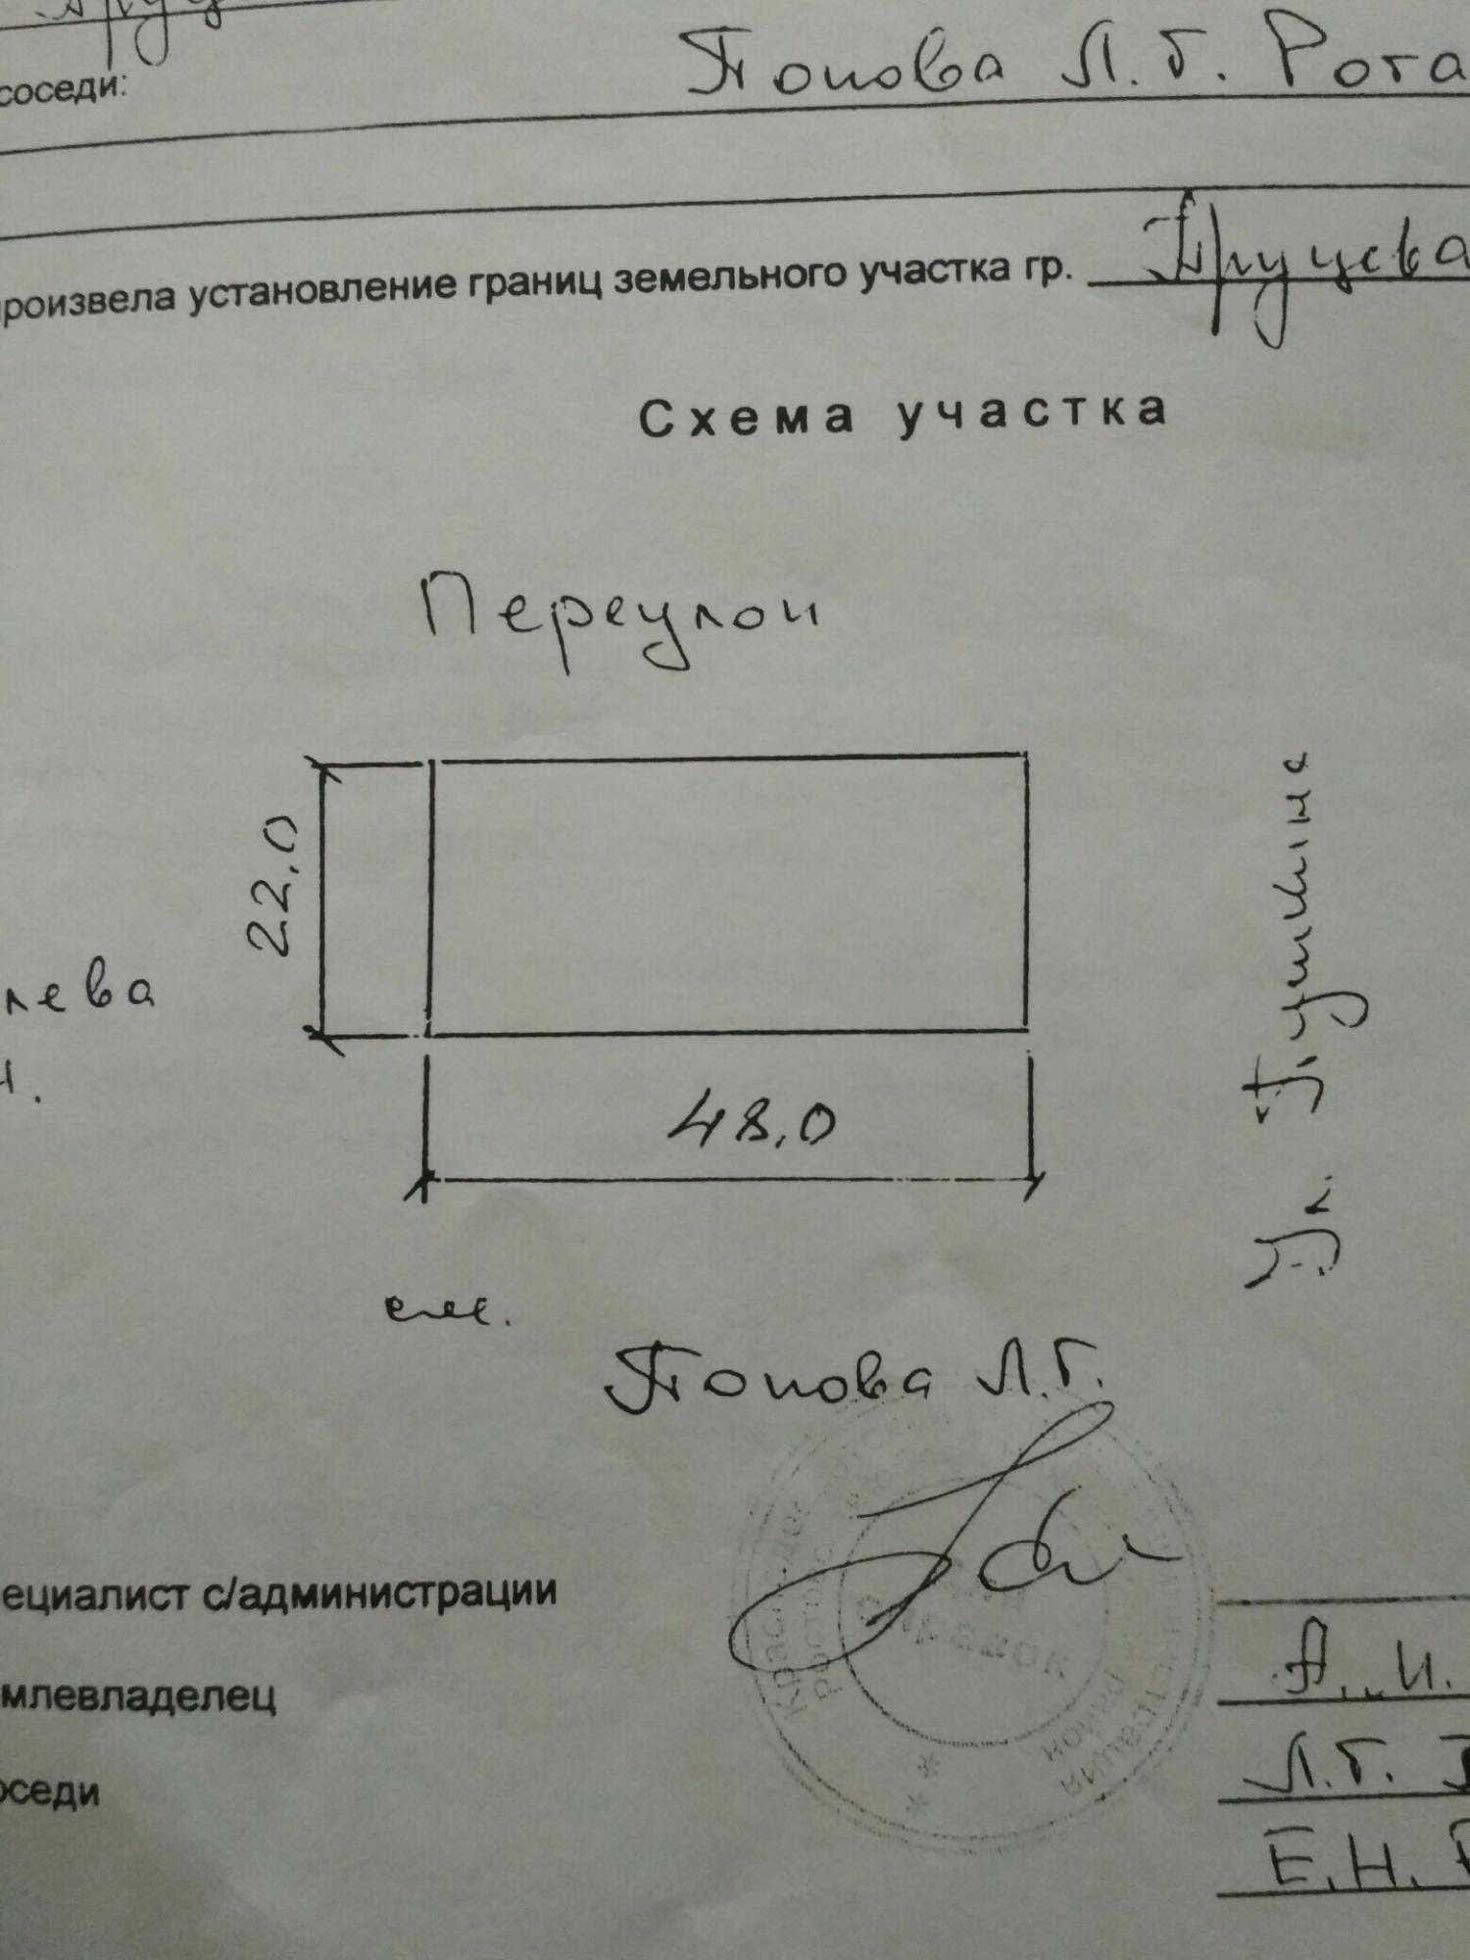 соседи:
Попова Л.Г. Рога
произвела установление границ земельного участка гр.
Схема участка
Переулок
22,0
лева
48,0
Ул. Пушкина
Попова Л.Г.
ециалист с/администрации
А.И.
млевладелец
Л.Г.
оседи
Е.Н.